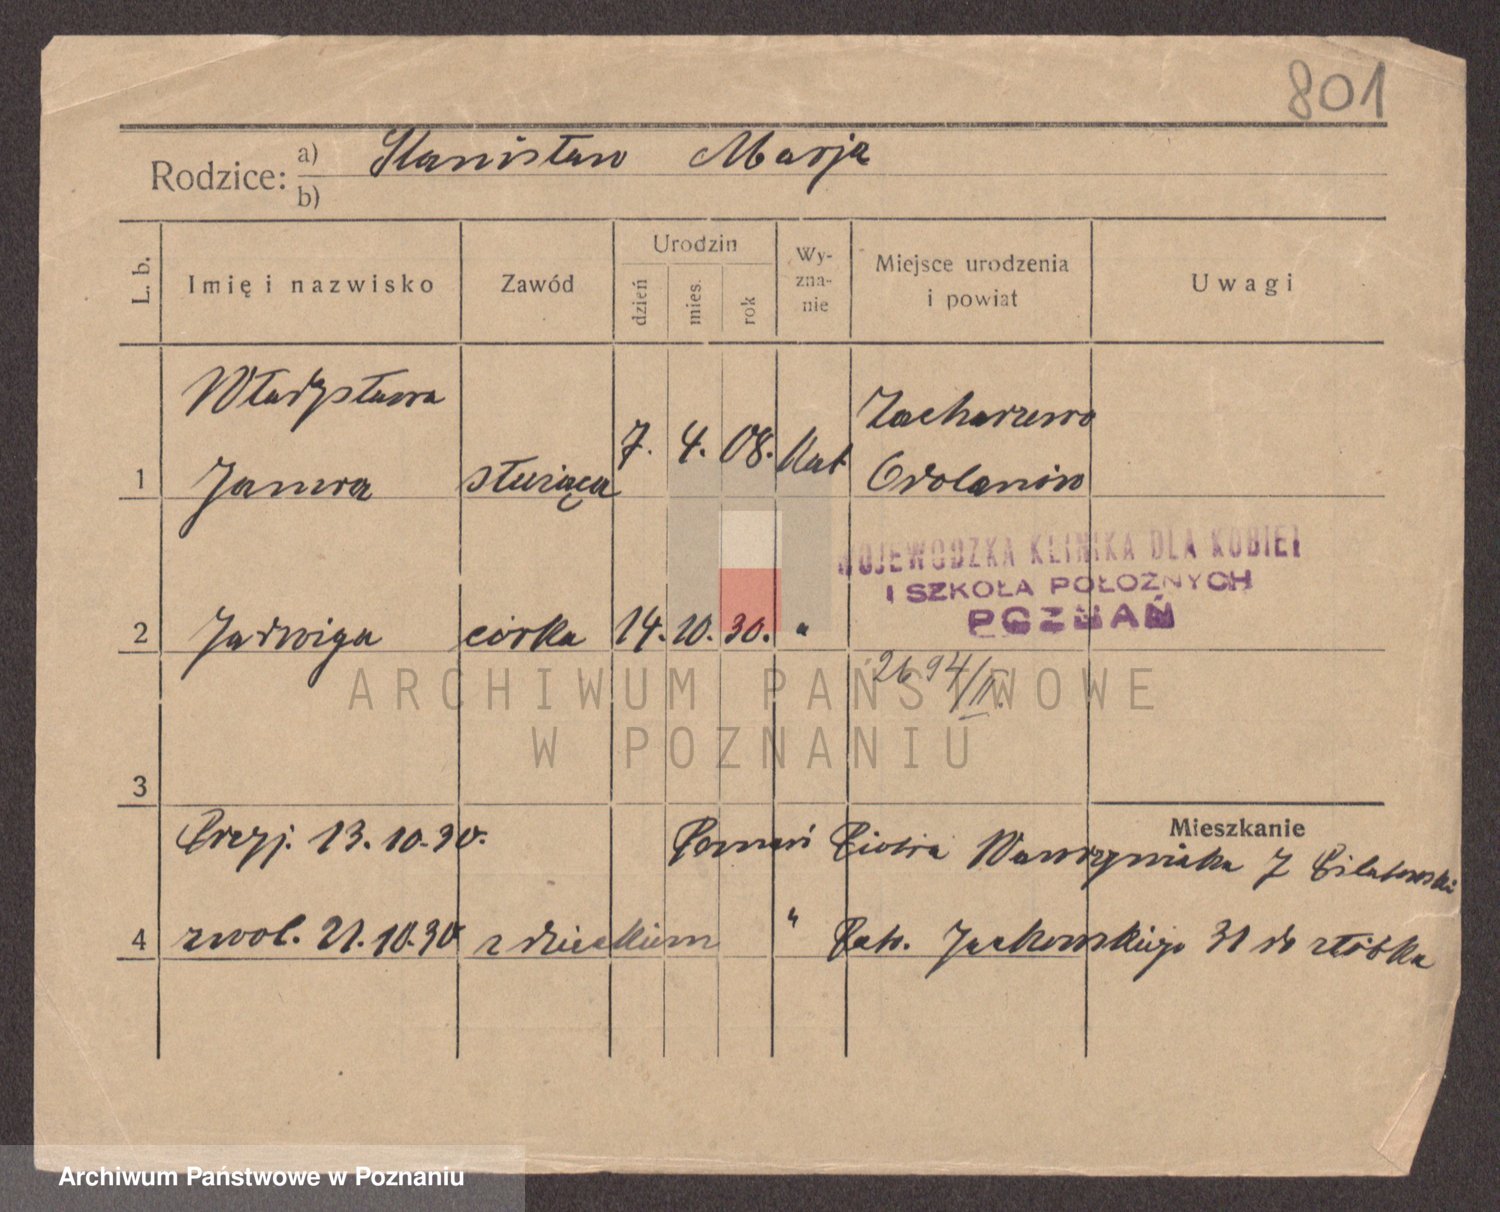 801
Rodzice: a) Stanisław Marja
b)
L. b. Imię i nazwisko Zawód Urodzin dzień mies. rok Wyznanie Miejsce urodzenia i powiat Uwagi
Władysława Zacharzewo
1 Janura służąca 7. 4. 08. Kat Odolanów
WOJEWODZKA KLINIKA DLA KOBIET
I SZKOŁA POŁOŻNYCH
POZNAŃ
2 Jadwiga córka 14. 10. 30. "
2694/II.
ARCHIWUM PAŃSTWOWE
W POZNANIU
3
Mieszkanie
Przyj. 13.10.30. Poznań Piotra Wawrzyniaka
4 zwol. 21.10.30 z dzieckiem " Patr. Jackowskiego 31 do żłóbka
Archiwum Państwowe w Poznaniu